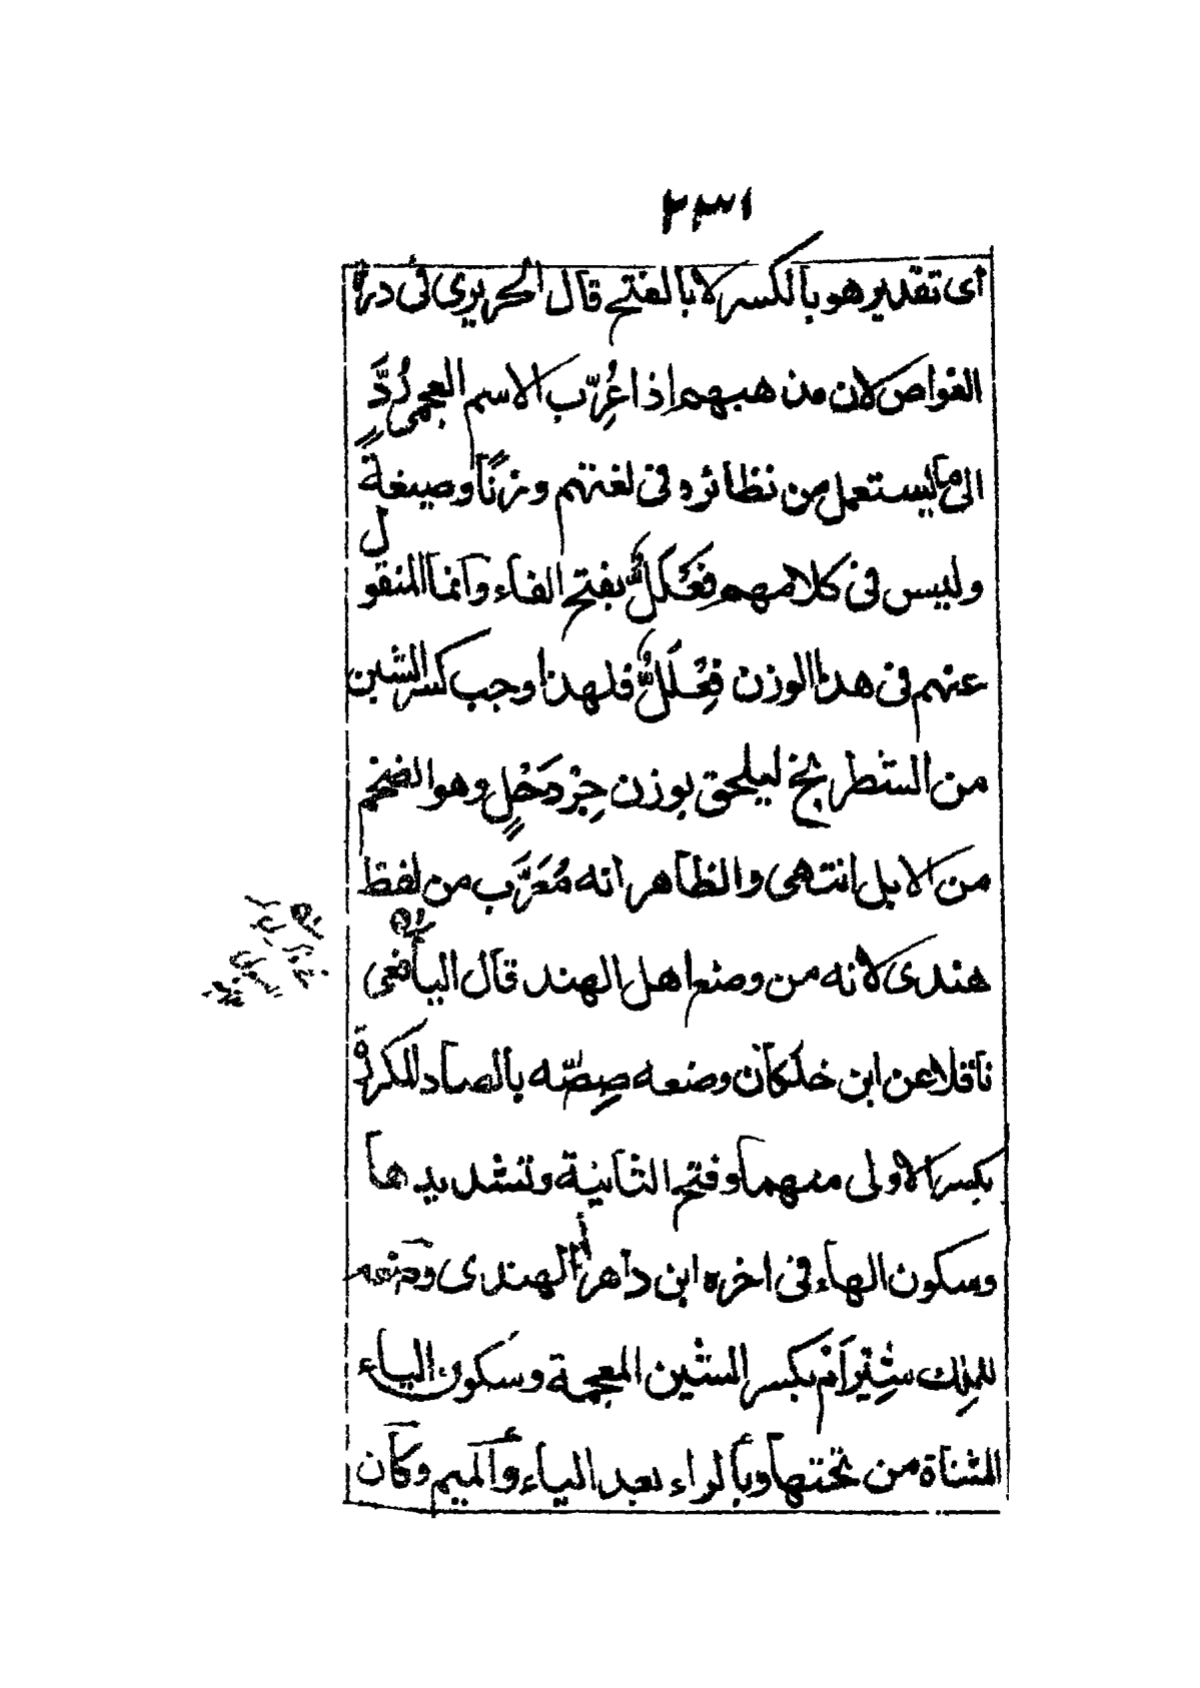 ٢٣١
اى تقدير هو بالكسر لا بالفتح قال الحريرى فى درة
الغواص لان مذهبهم اذا عُرِّب الاسم العجمى رُدَّ
الى ما يستعمل من نظائره فى لغتهم وزنًا وصيغةً
وليس فى كلامهم فَعْلَلٌّ بفتح الفاء وانما المنقول
عنهم فى هذا الوزن فِعْلَلٌّ فلهذا وجب كسر الشين
من الشطرنج ليلحق بوزن جِرْدَحْلٍ وهو الضخم
من الابل انتهى والظاهر انه مُعَرَّب من لفظ
هندى لانه من وضع اهل الهند قال اليافعى
ناقلا عن ابن خلكان وضعه صِصَّه بالصاد المكررة
بكسر الاولى منهما وفتح الثانية وتشديدها
وسكون الهاء فى اخره ابن داهر الهندى وضعه
للملِك شِيْرَامْ بكسر الشين المعجمة وسكون الياء
المثناة من تحتها وبالراء بعد الياء والميم وكان